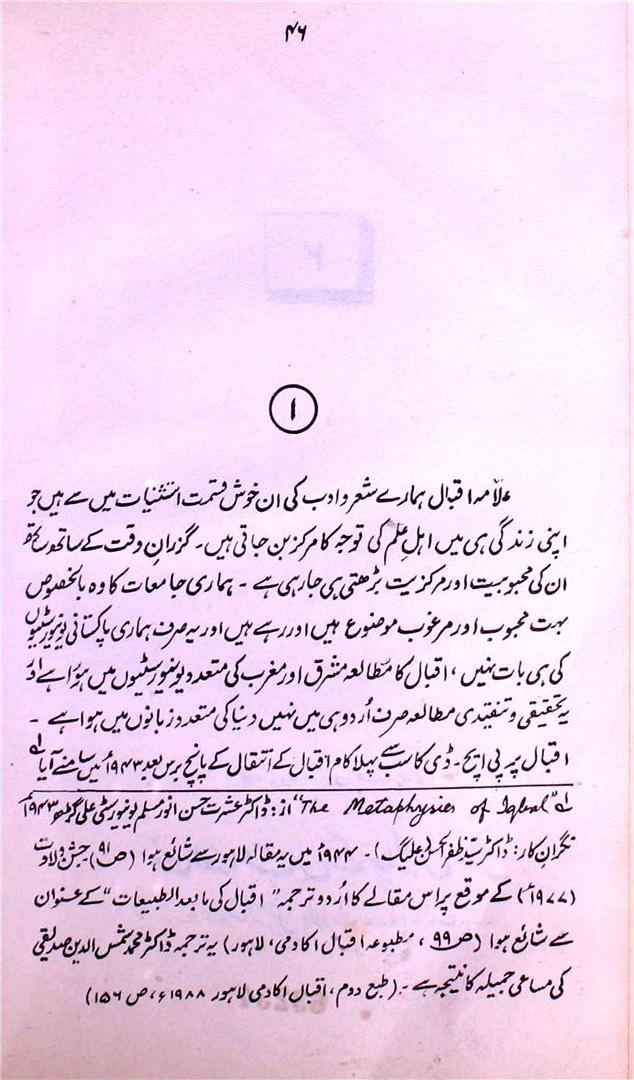 ۴۶
۱
علامہ اقبال ہمارے شعر و ادب کی ان خوش قسمت استثنیات میں سے ہیں جو
اپنی زندگی ہی میں اہلِ علم کی توجہ کا مرکز بن جاتی ہیں۔ گزرانِ وقت کے ساتھ ساتھ
ان کی محبوبیت اور مرکزیت بڑھتی ہی جا رہی ہے۔ ہماری جامعات کا وہ بالخصوص
بہت محبوب اور مرغوب موضوع ہیں اور رہے ہیں اور یہ صرف ہماری پاکستانی یونیورسٹیوں
کی ہی بات نہیں، اقبال کا مطالعہ مشرق اور مغرب کی متعدد یونیورسٹیوں میں ہوا ہے اور
یہ تحقیقی و تنقیدی مطالعہ صرف اُردو ہی میں نہیں دنیا کی متعدد زبانوں میں ہوا ہے۔
اقبال پر پی ایچ۔ ڈی کا سب سے پہلا کام اقبال کے انتقال کے پانچ برس بعد ۱۹۴۳ء میں سامنے آیا لے
لے "The Metaphysics of Iqbal" از: ڈاکٹر عشرت حسن انور مسلم یونیورسٹی علی گڑھ ۱۹۴۳ء
نگران کار: ڈاکٹر سیّد ظفر الحسن علیگ)۔ ۱۹۴۴ء میں یہ مقالہ لاہور سے شائع ہوا (ص ۹۱) جشنِ ولادت
(۱۹۷۷ء) کے موقع پر اس مقالے کا اُردو ترجمہ "اقبال کی مابعد الطبیعات" کے عنوان
سے شائع ہوا (ص ۹۹، مطبوعہ اقبال اکادمی، لاہور) یہ ترجمہ ڈاکٹر محمد شمس الدین صدیقی
کی مساعی جمیلہ کا نتیجہ ہے۔ (طبع دوم، اقبال اکادمی لاہور ۱۹۸۸ء، ص ۱۵۶)